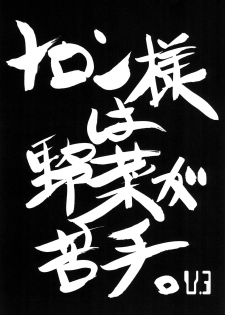 ナロン様
は
野菜が
苦手。
V.3